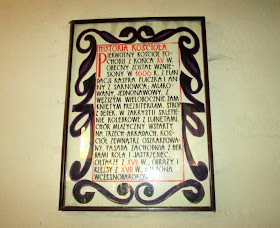 HISTORIA KOŚCIOŁA
PIERWOTNY KOŚCIÓŁ PO-
CHODZI Z KOŃCA XV W.
OBECNY ZOSTAŁ WZNIE-
SIONY W 1600 R. Z FUN-
DACJI KASPRA PLICZKA I AN-
NY Z SARNOWCA; MURO-
WANY, JEDNONAWOWY, Z
WĘŻSZYM, WIELOBOCZNIE ZAM-
KNIĘTYM PREZBITERIUM. STROP
Z DESEK, W ZAKRYSTII SKLEPIE-
NIE KOLEBKOWE Z LUNETAMI.
CHÓR MUZYCZNY WSPARTY
NA TRZECH ARKADACH. KOŚ-
CIÓŁ ZEWNĄTRZ OSZKARPOWA-
NY, FASADA ZACHODNIA Z HER-
BAMI ROLA I JASTRZĘBIEC,
OŁTARZE Z XVII W., OBRAZY I
RZEŹBY Z XVII W. AMBONA
WCZESNOBAROKOWA